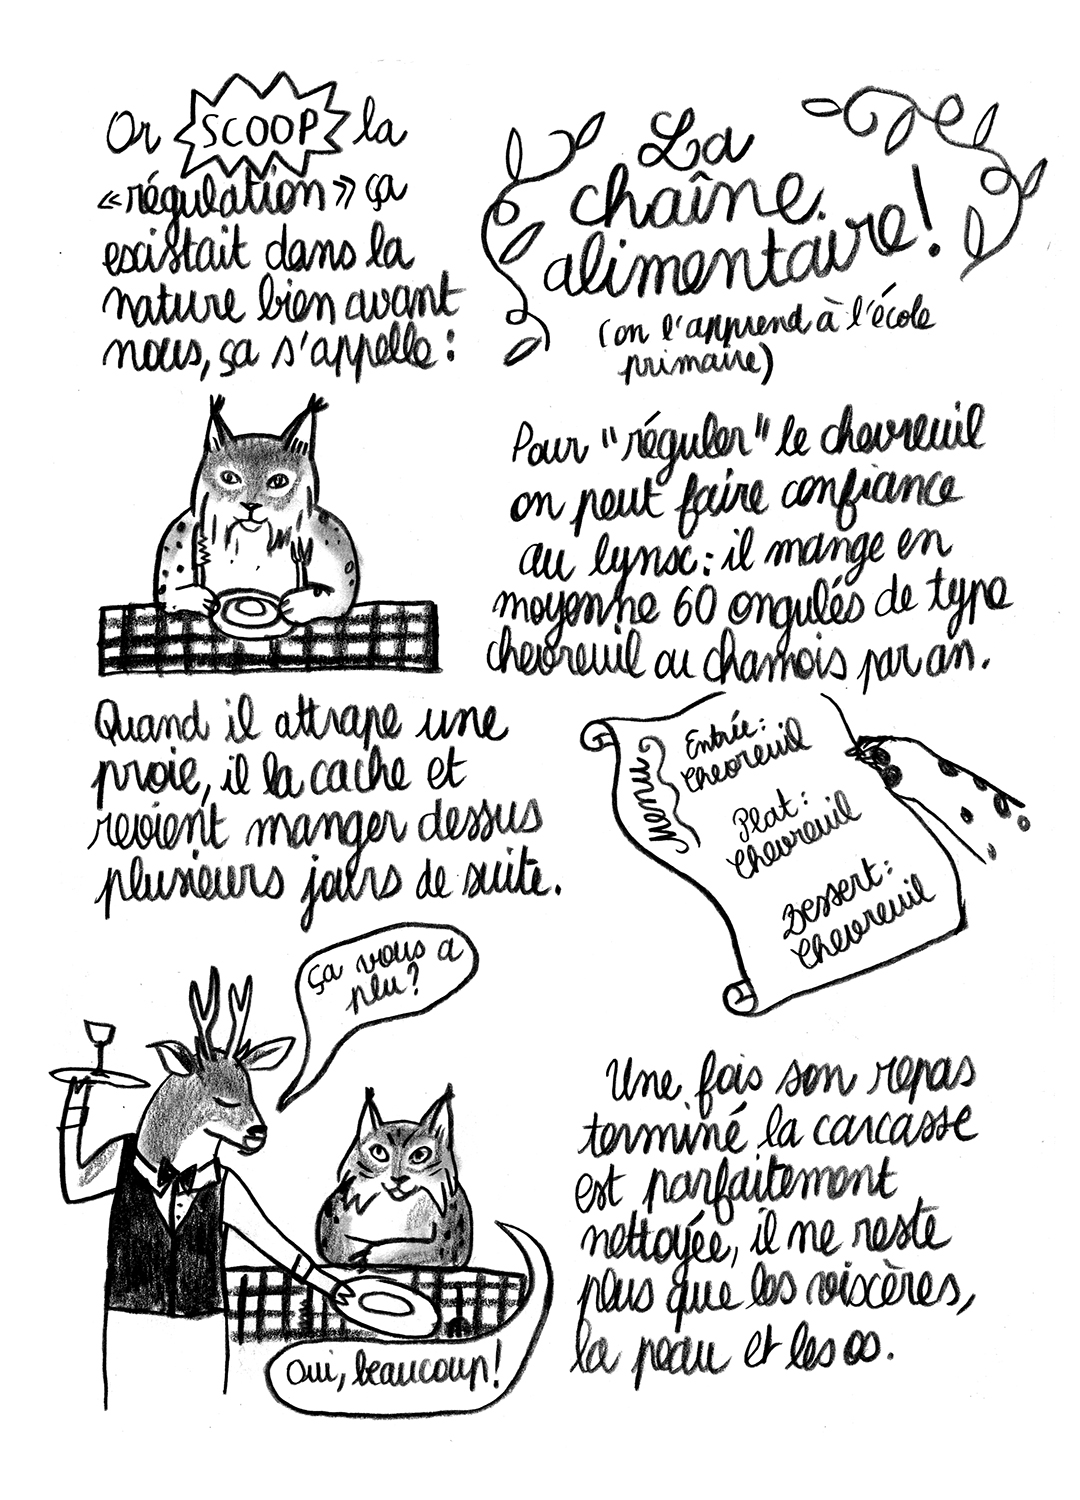 Or SCOOP la
«régulation» ça
existait dans la
nature bien avant
nous, ça s'appelle :
La
chaîne
alimentaire!
(on l'apprend à l'école
primaire)
Pour "réguler" le chevreuil
on peut faire confiance
au lynx : il mange en
moyenne 60 ongulés de type
chevreuil ou chamois par an.
Quand il attrape une
proie, il la cache et
revient manger dessus
plusieurs jours de suite.
Menu
Entrée :
Chevreuil
Plat :
Chevreuil
Dessert :
Chevreuil
ça vous a
plu ?
Oui, beaucoup!
Une fois son repas
terminé la carcasse
est parfaitement
nettoyée, il ne reste
plus que les viscères,
la peau et les os.